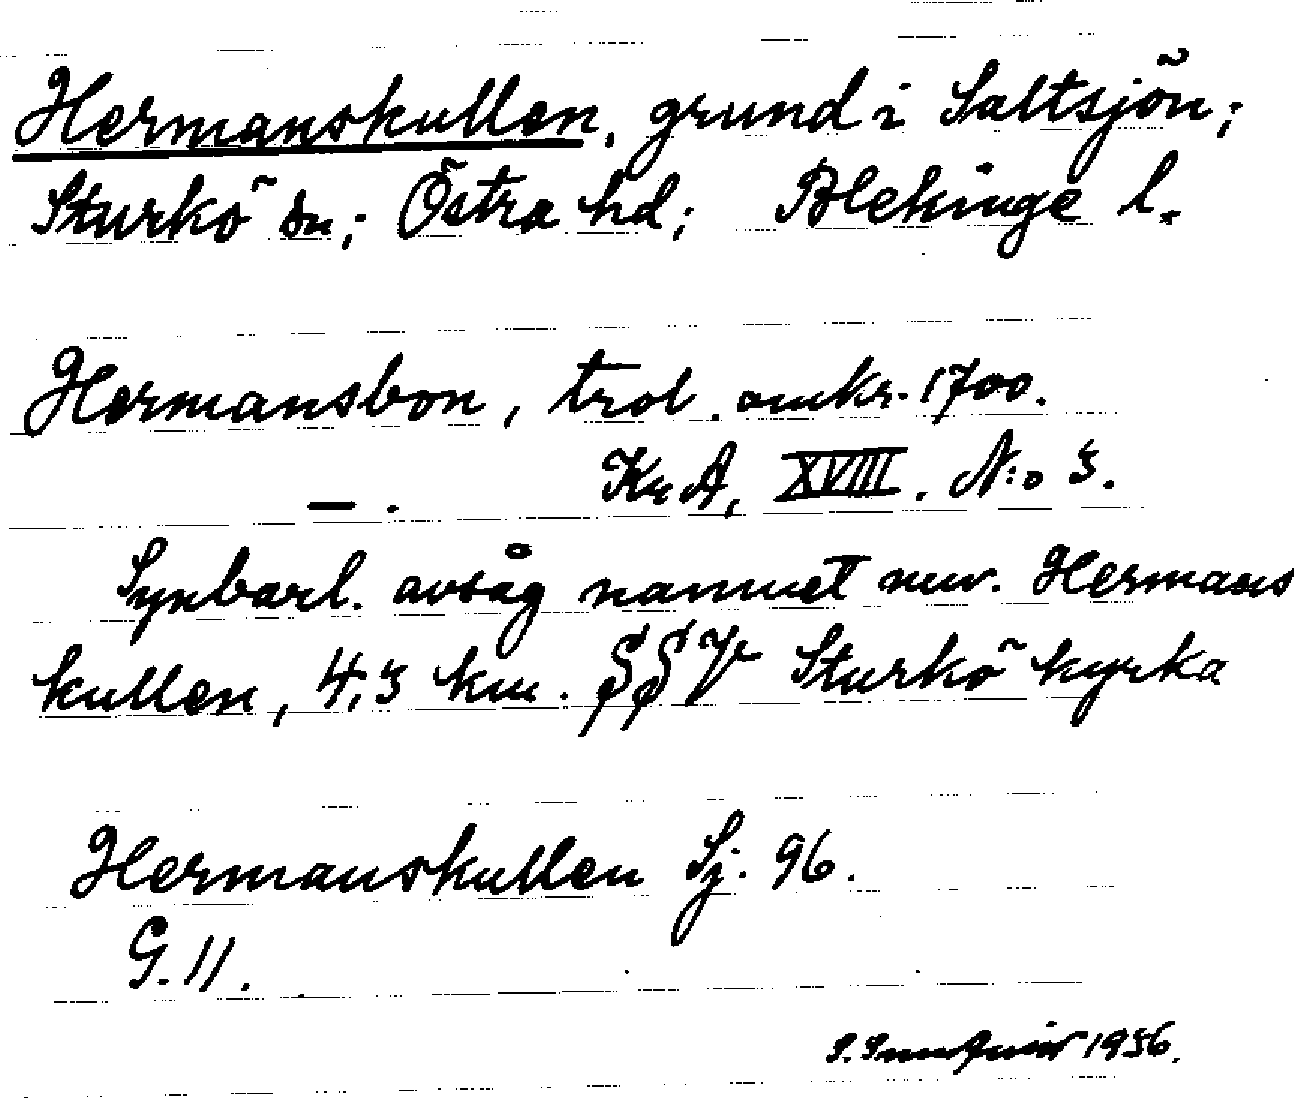 Hermanskullen, grund i Saltsjön;
Sturkö sn; Östra hd; Blekinge l.
Hermansbon, trol. omkr. 1700.
—. KrA, XVIII. N:o 3.
Synbarl. avsåg namnet nuv. Hermans
kullen, 4,3 km. SSV Sturkö kyrka
Hermanskullen Sj. 96.
G. 11.
1936.